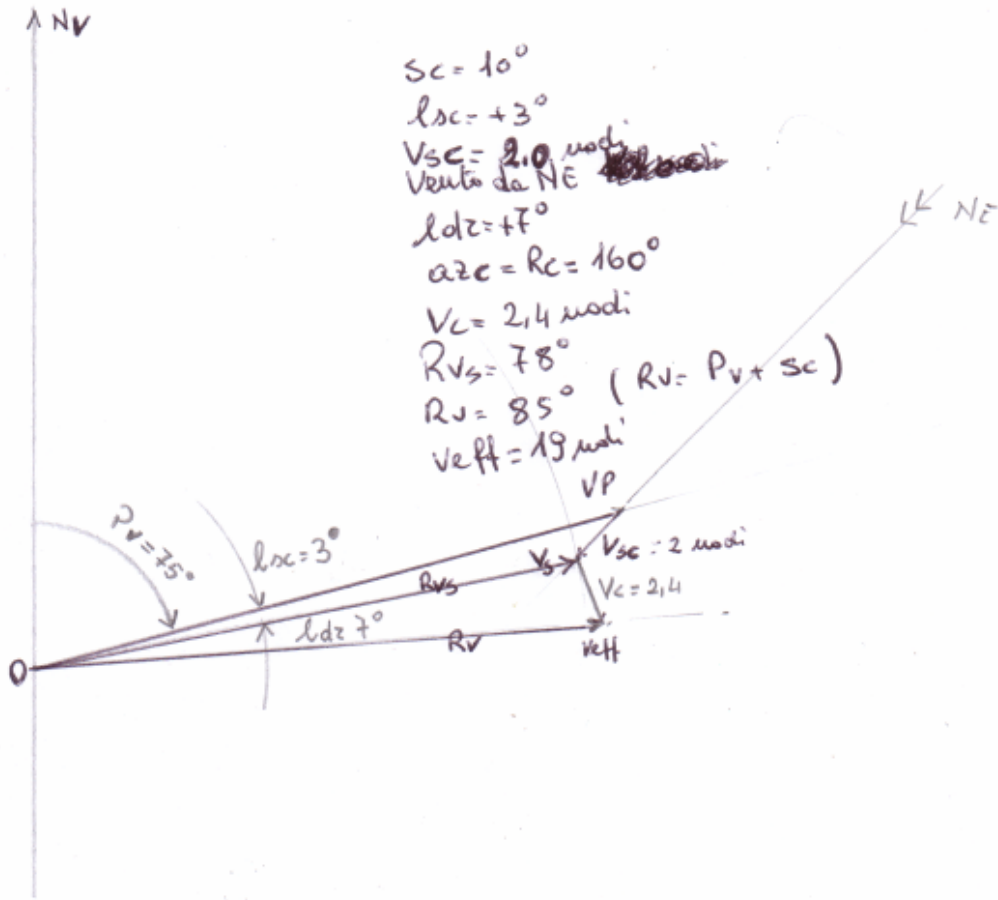 NV
Sc = 10°
lsc = +3°
Vsc = 2.0 nodi
Vento da NE
ldr = +7°
azc = Rc = 160°
Vc = 2,4 nodi
Rvs = 78°
Rv = 85° (Rv = Pv + Sc)
Veff = 19 nodi
NE
VP
Pv = 75°
lsc = 3°
Vsc = 2 nodi
Vs
Rvs
Vc = 2,4
ldr 7°
Rv
Veff
O